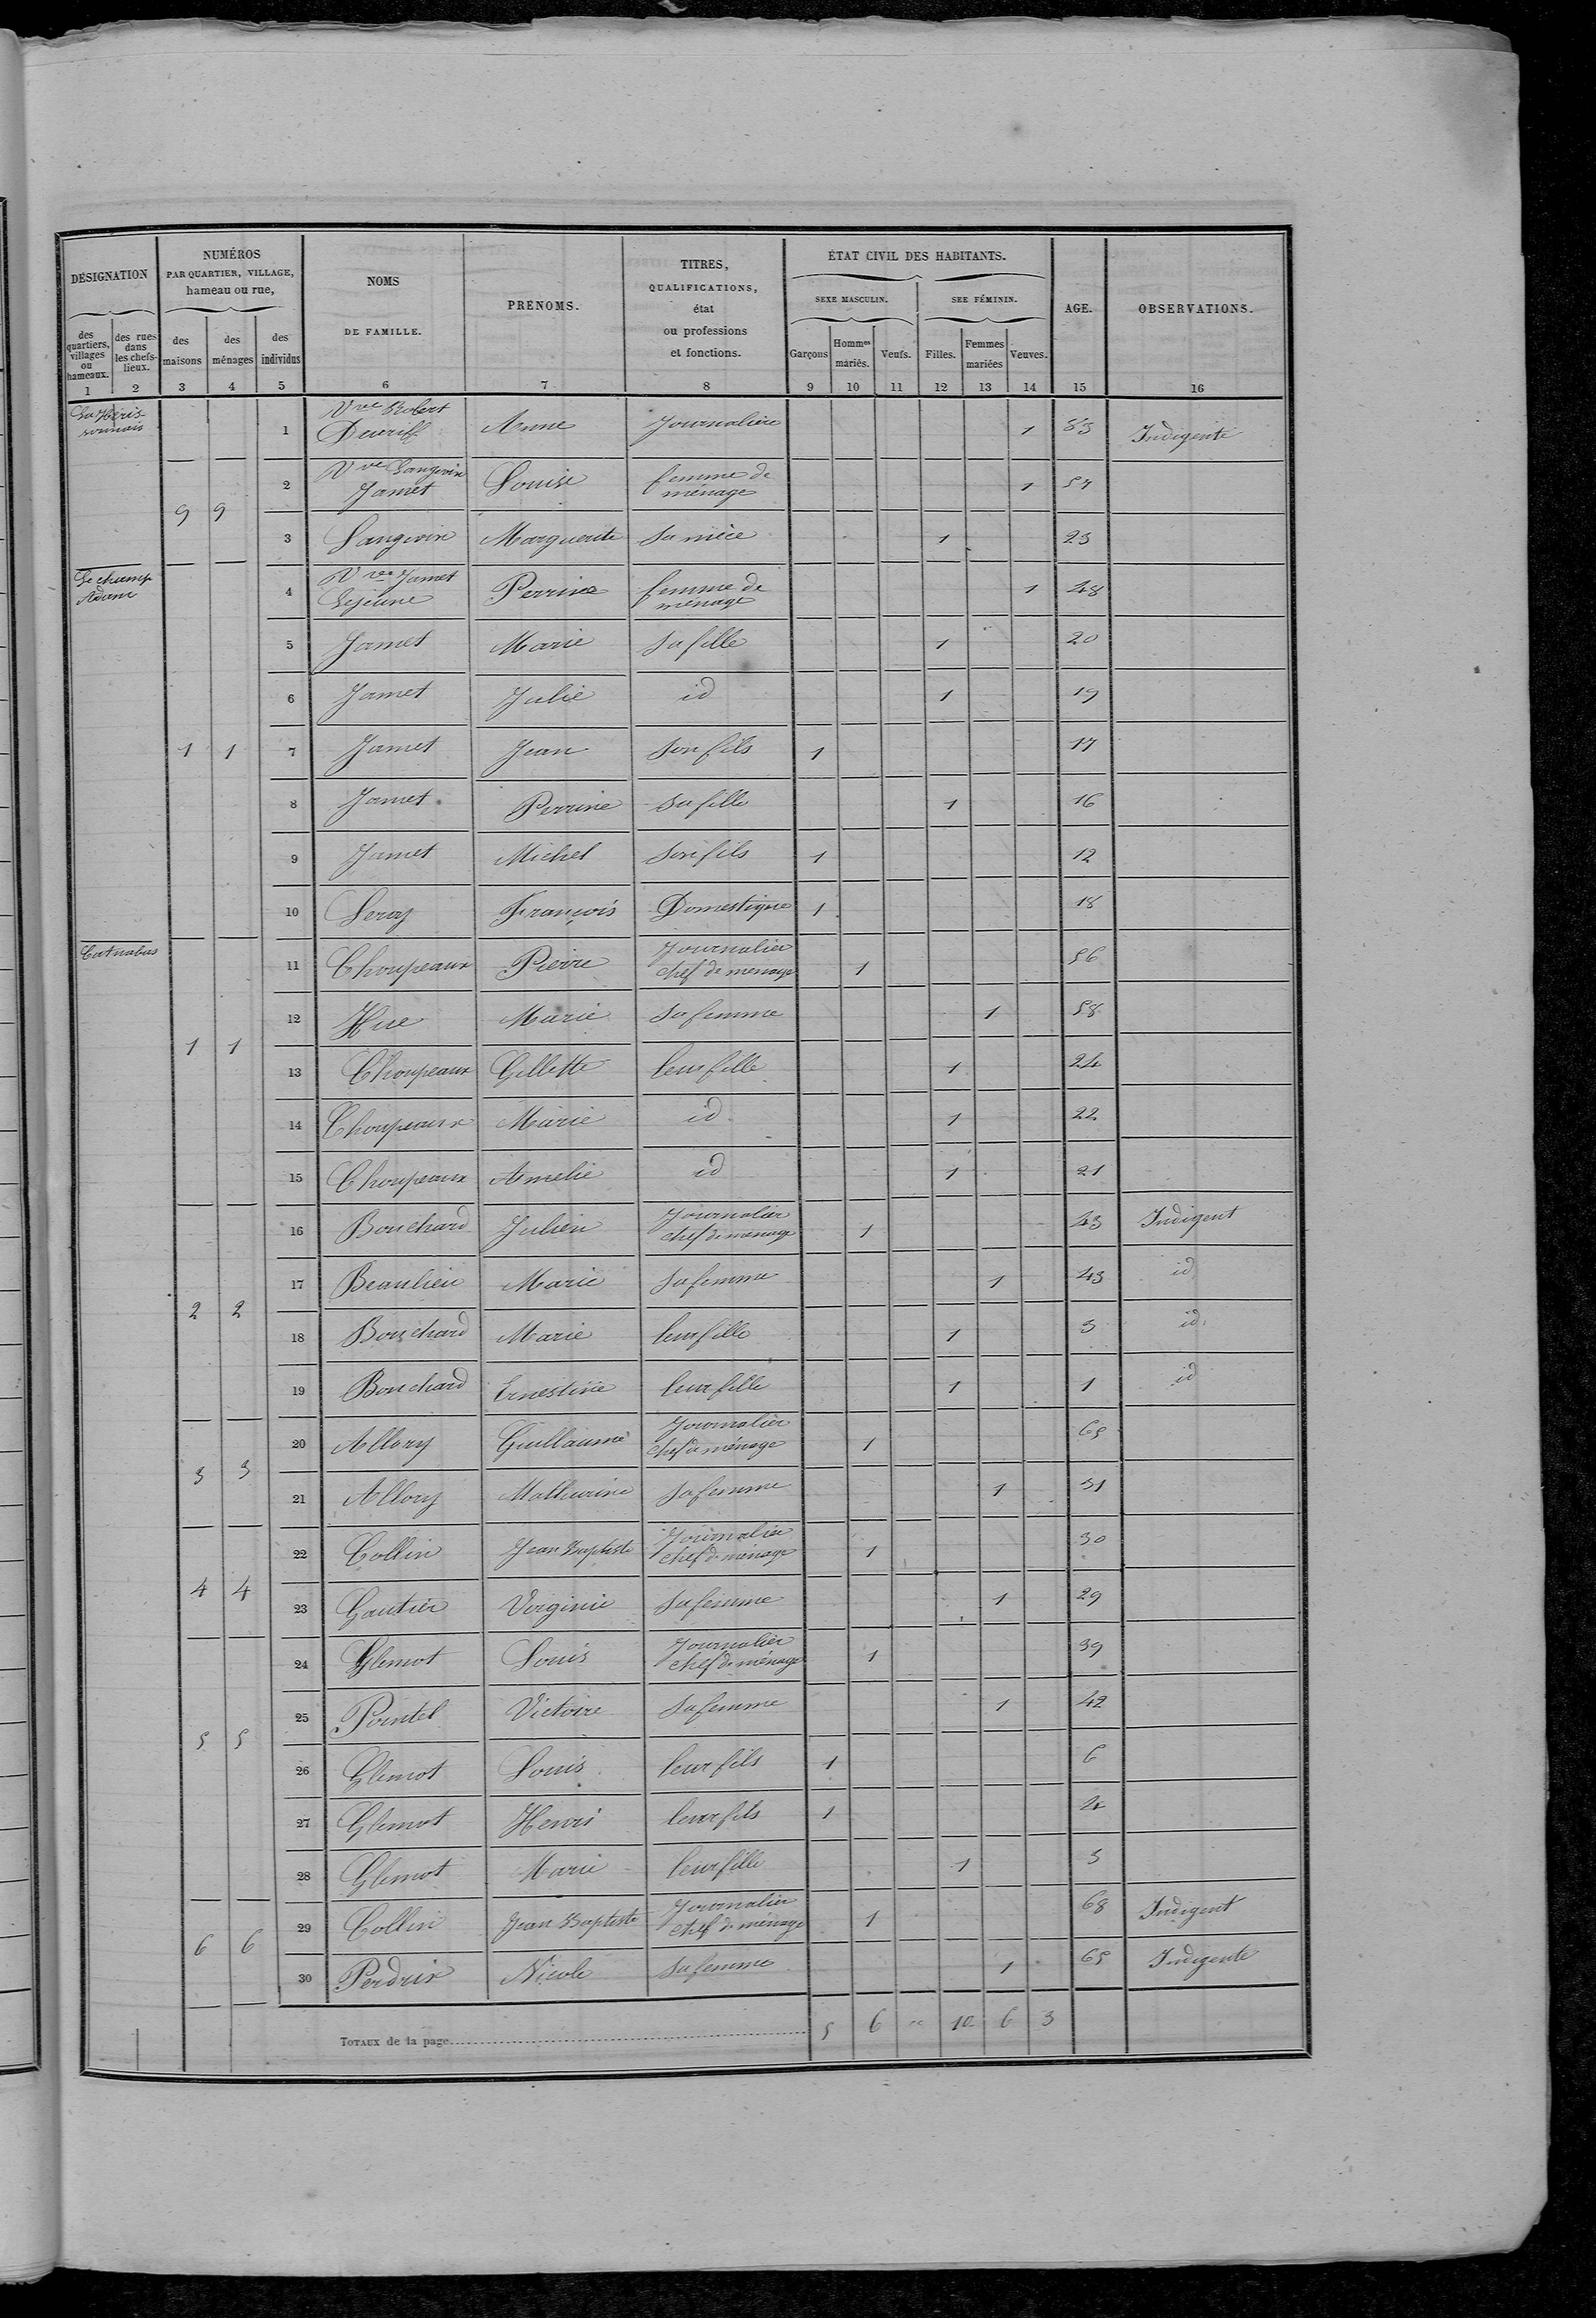 DÉSIGNATION
NUMÉROS
PAR QUARTIER, VILLAGE,
hameau ou rue,
NOMS
DE FAMILLE.
PRÉNOMS.
TITRES,
QUALIFICATIONS,
état
ou professions
et fonctions.
ÉTAT CIVIL DES HABITANTS.
SEXE MASCULIN.
SEE FÉMININ.
AGE.
OBSERVATIONS.
des quartiers, villages ou hameaux.
des rues dans les chefs-lieux.
des maisons
des ménages
des individus
Garçons
Hommes mariés.
Veufs.
Filles.
Femmes mariées
Veuves.
1 2 3 4 5 6 7 8 9 10 11 12 13 14 15 16
Vve Robert
1 Anne Journalière 1 83 Indigente
Vve Langevin femme de
2 Jamet Louise ménage 1 57
9 9
3 Langevin Marguerite Sa nièce 1 23
Le champ Vve Jamet femme de
Adam 4 Lejeune Perrine ménage 1 48
5 Jamet Marie Sa fille 1 20
6 Jamet Julie id 1 19
1 1 7 Jamet Jean Son fils 1 17
8 Jamet Perrine Sa fille 1 16
9 Jamet Michel Son fils 1 12
10 Leray François Domestique 1 18
Journalier
11 Choupeaux Pierre chef de ménage 1 56
12 Hue Marie Sa femme 1 58
1 1
13 Choupeaux Gillette leur fille 1 24
14 Choupeaux Marie id 1 22
15 Choupeaux Amelie id 1 21
Journalier
16 Bouchard Julien chef de ménage 1 43 Indigent
17 Beaulieu Marie Sa femme 1 43 id
2 2
18 Bouchard Marie leur fille 1 3 id
19 Bouchard Ernestine leur fille 1 1 id
Journalier
20 Allory Guillaume chef de ménage 1 65
3 3
21 Allory Mathurine Sa femme 1 51
Journalier
22 Collin Jean Baptiste chef de ménage 1 30
4 4
23 Gautier Virginie Sa femme 1 29
Journalier
24 Glemot Louis chef de ménage 1 39
25 Pointel Victoire Sa femme 1 42
5 5
26 Glemot Louis leur fils 1 6
27 Glemot Henri leur fils 1 4
28 Glemot Marie leur fille 1 3
Journalier
29 Collin Jean Baptiste chef de ménage 1 68 Indigent
6 6
30 Perdrix Nicole Sa femme 1 65 Indigente
TOTAUX de la page 5 6 " 10 6 3